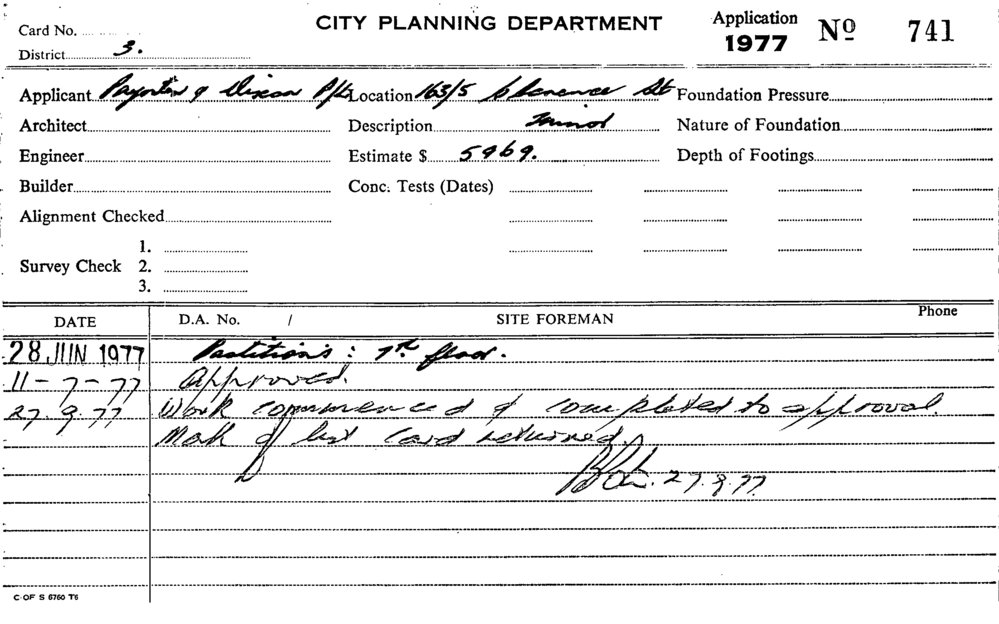 Card No.
CITY PLANNING DEPARTMENT
Application 1977 No 741
District 3.
Applicant Paynter & Dixon P/L Location 163/5 Clarence St Foundation Pressure
Architect Description Nature of Foundation
Engineer Estimate $ 5969. Depth of Footings
Builder Conc. Tests (Dates)
Alignment Checked
1.
Survey Check 2.
3.
DATE D.A. No. / SITE FOREMAN Phone
28 JUN 1977 Partitions: 7th floor.
11-7-77 Approved.
27.9.77 Work commenced & completed to approval.
of last Card returned.
27.9.77
C OF S 6760 T6